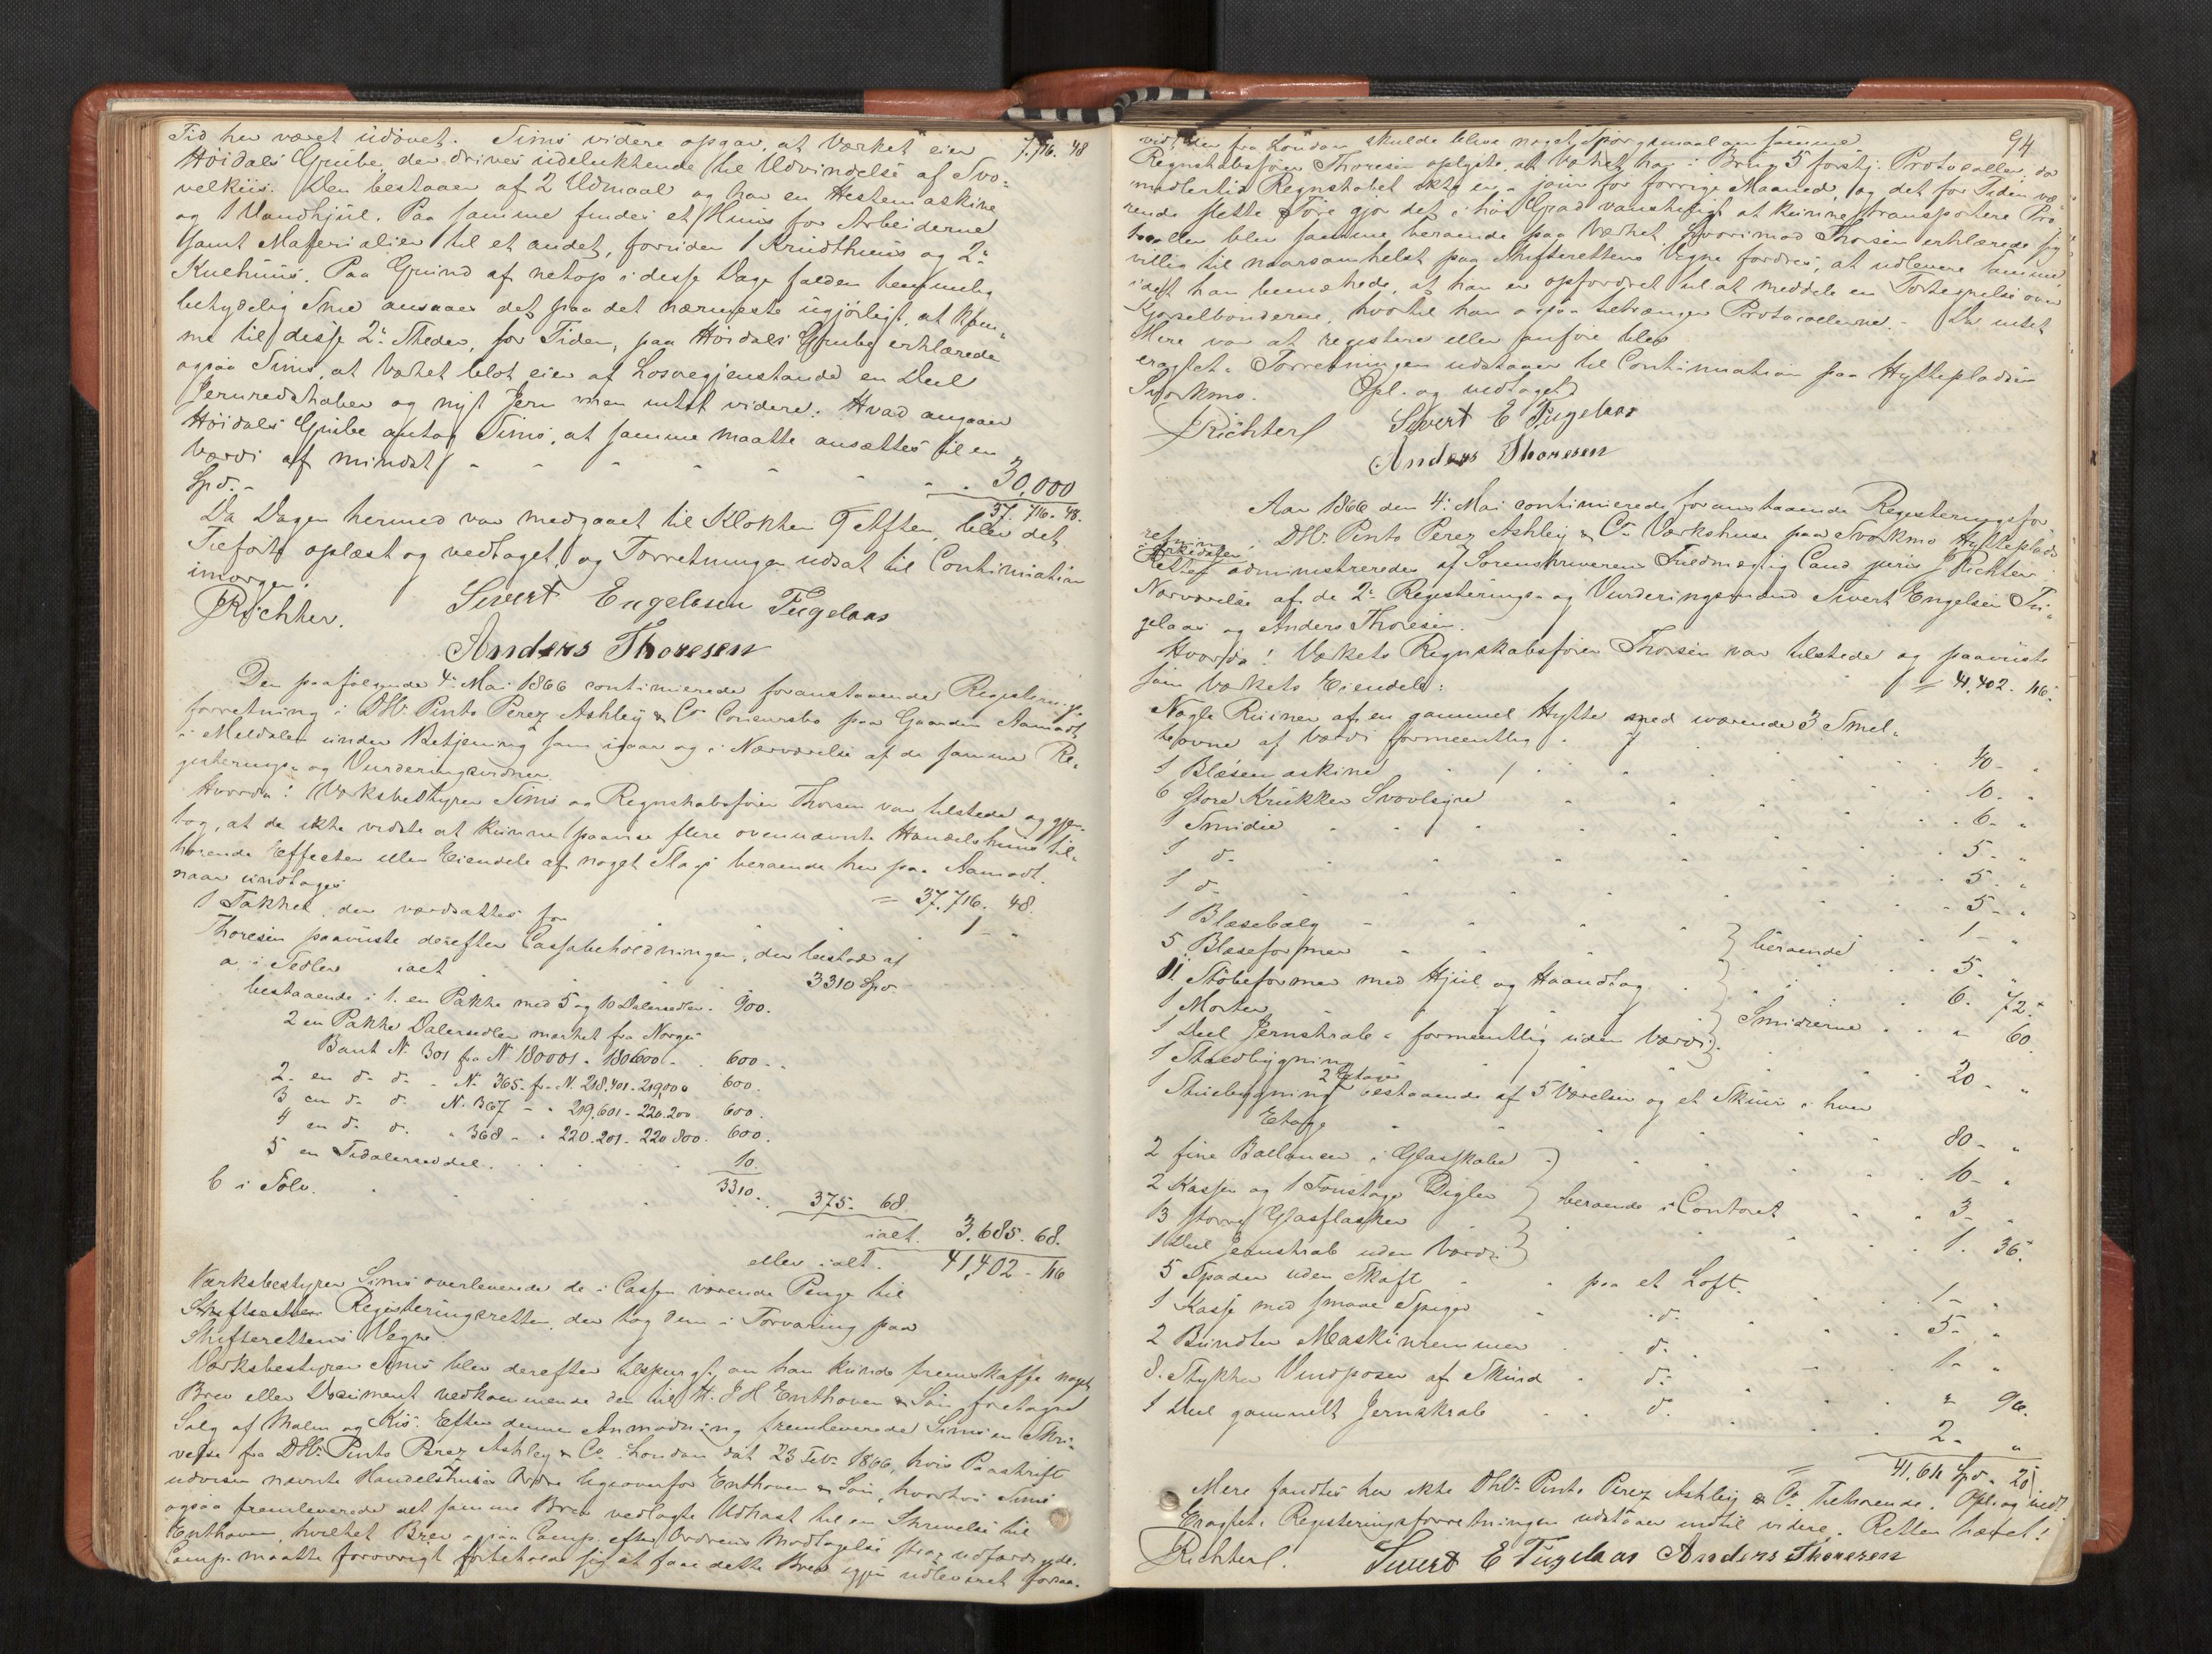 Tid her været udövet. Sims videre opgav, at Værket eier 7,716. 48
Höidals Grube, der drives udelukkende til Udvindelse af Svo-
velkiis. Den bestaaer af 2 Udmaal og har en Hestemaskine
og 1 Vandhjul. Paa samme findes et Huus for Arbeiderne
samt Materialier til et andet, foruden 1 Krudthuus og 2de
Kulhuus. Paa Grund af netop i disse Dage falden
betydelig Snee ansaaes det paa det nærmeste ugjörligt, at kom-
me til disse 2de Steder, for Tiden, paa Höidals Grube erklærede
ogsaa Sims, at Værket blot eier af Lösøregjenstande en Deel
Jernredskaber og nyt Jern men intet videre. Hvad angaaer
Höidals Grube antog Sims, at samme maatte ansættes til en
Værdi af mindst - - - - - - 30,000
Spd. - 37.716. 48.
Da Dagen hermed var medgaaet til Klokken 9 Aften, blev det
Tilförte oplæst og vedtaget, og Forretningen udsat til Continuation
imorgen.
JRichter. Sivert Engelssen Fugelaas
Anders Thoresen
Den paafölgende 4de Mai 1866 continuerede foranstaaende Registerings-
forretning i DHr Pinto Perez Ashley & Co Concursbo paa Gaarden Aamodt
i Meldalen under Betjening som igaar og i Nærværelse af de samme Re-
gisterings- og Vurderingsvidner.
Hvorda! Værksbestyrer Sims og Regnskabsförer Thoresen var tilstede og
tog, at de ikke vidste at kunne paavise flere ovennævnte Handelshuus til-
hörende Effecter eller Eiendele af noget Slags beroende her paa Aamodt.
naar undtages = 37.716. 48.
1 Pakke, der værdsattes for 1 - "
Thoresen paaviiste derefter Cassabeholdningen, der bestod af
a, i Sedler ialt 3310 Spd.
bestaaende i 1. en Pakke med 5 og 10 Dalersedler. 900.
2 en Pakke Dalersedler mærket fra Norges
Bank N. 301 fra N. 180001 - 180600 - 600 -
2. en do do - N. 365 - fra N. 218,401 - 219,000 600.
3 en do do N. 367 - " 219,601 - 220.200. 600.
4 en do do " 368 - " 220.201 - 220.800. 600.
5 en Tidalerseddel. 10.
3310.
b i Sölv. 375. 68
ialt. 3,685. 68.
eller ialt. 41,402 - 116
Værksbestyrer Sims overleverede de i Cassen værende Penge til
Registeringsretten, der tog dem i Forvaring paa
Skifterettens Vegne.
Værksbestyrer Sims blev derefter tilspurgt, om han kunde fremskaffe noget
Brev eller Document vedkommende den til Hr. J H Enthoven & Sön foretagne
Salg af Malm og Kis. Efter denne Anmodning fremleverede Sims en Skri-
velse fra DHr. Pinto Perez Ashley & Co London dat 23 Febr 1866, hvis Paaskrift
udviser nævnte Handelshuses Ordre ligeoverfor Enthoven & Sön, hvorhos Sims
ogsaa fremleverede det samme Brev vedlagte Udkast til en Skrivelse til
Enthoven, hvilket Brev ogsaa Comp. efter Ordrens Modtagelse strax udfærdigede.
Comp. maatte forövrigt forbeholde sig at faae dette Brev igjen udleveret foraa-
94
vidt den fra London skulde blive noget Spörgsmaal om samme.
Regnskabsförer Thoresen oplyste, at Værket har i Brug 5 forskj. Protocoller, da
imidlertid Regnskabet ikke er a jour for forrige Maaned, og det for Tiden væ-
rende slette Före gjör det i höi Grad vanskeligt at kunne transportere Pro
tocoller blev samme beroende paa Værket, hvorimod Thoresen erklærede sig
villig til naarsomhelst paa Skifterettens Vegne fordres, at udlevere samme,
idet han bemærkede, at han er opfordret til at meddele en Fortegnelse over
Kjörselbönderne, hvortil han ogsaa behöver Protocollerne. - Da intet
Mere var at registere eller anföre blev
eragtet. Forretningen udstaaer til Continuation paa Hyttepladsen
Svorkmo. Opl. og vedtaget.
JRichter Sivert E Fugelaas
Anders Thoresen
Aar 1866 den 4de Mai continuerede foranstaaende Registeringsfor
retning i DHr. Pinto Perez Ashley & Co Værkshuse paa Svorkmo Hytteplads
Retten administreredes af Sorenskriverens Fuldmægtig Cand juris J Richter i
Nærværelse af de 2de Registerings- og Vurderingsmænd Sivert Engelsen Fu-
gelaas og Anders Thoresen.
Hvorda! Værkets Regnskabsförer Thoresen var tilstede og paaviiste
som Værkets Eiendele: = 41,402. 116.
Nogle Ruiner af en gammel Hytte med værende 3 Smel-
teovne af Værdi formeentlig 40 - "
1 Blæsemaskine 10 - "
6 store Krukker Svovlsyre 6 - "
1 Smidie 5 - "
1 do 5 - "
1 do 5 - "
1 Blæsebælg 1 - "
5 Blæseformer } beroende 5 - "
11 Stöbeformer med Hjul og Haandtag 6. 72.
1 Morter } Smidierne " 60
1 Deel Jernskrab - formeentlig uden Værdi
1 Staldbygning 20 - "
1 Stuebygning 2 Etages bestaaende af 5 Værelser og et Skuur i hver
Etage 80 - "
2 fine Ballancer i Glasskabe 10 - "
2 Kasser og 1 Foustage Digler } beroende i Contoret 3 - "
13 större Glasflasker 1. 36.
1 Deel Jernskrab uden Værdi
5 Spader uden Skaft paa et Loft. 1 - "
1 Kasse med smaae Spiger do. 5 - "
2 Bundter Maskinremmer do. 1 - "
8. Stykker Vindposer af Skind do. " 96.
1 Deel gammelt Jernskrab do. 2 - "
= 41,611 Spd. 20
Mere fandtes her ikke DHr Pinto Perez Ashley & Co Tilhörende. Opl. og vedt.
Eragtet. Registeringsforretningen udstaaer indtil videre. Retten hævet!
JRichter. Sivert E Fugelaas Anders Thoresen